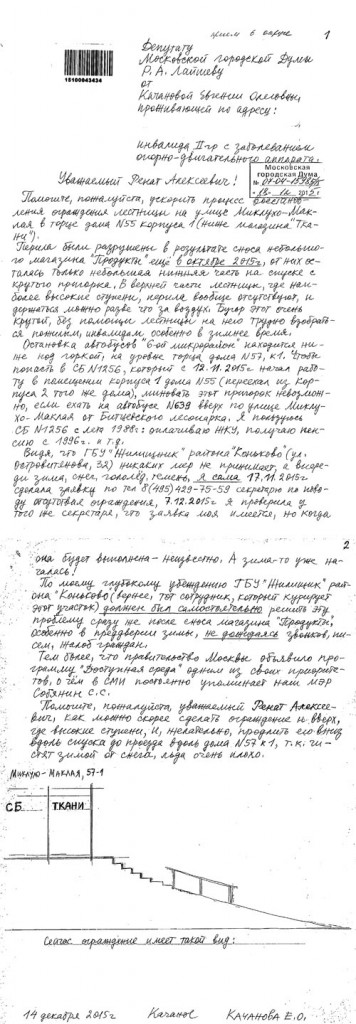 1
15100943434
Депутату
Московской городской Думы
Р.А. Лапшеву
от
Качановой Евгении Олеговны,
проживающей по адресу:
инвалида II гр с заболеванием
опорно-двигательного аппарата.
Московская
городская Дума
Уважаемый Ренат Алексеевич!
Помогите, пожалуйста, ускорить процесс
ления ограждения лестницы на улице Миклухо-Мак-
лая в торце дома N55 корпуса 1 (ниже магазина "Тка-
ни").
Перила были разрушены в результате сноса небольшо-
го магазина "Продукты" ещё 6 октября 2015г, от них ос-
талась только небольшая нижняя часть на спуске с
крутого пригорка. В верхней части лестницы, где наи-
более высокие ступени, перила вообще отсутствуют, и
держаться можно разве что за воздух. Бугор этот очень
крутой, без помощи лестницы на него трудно взобрать-
ся пожилым, инвалидам, особенно в зимнее время.
Остановка автобусов "6-ой микрорайон" находится ни-
же под горкой, на уровне торца дома N57, к1. Чтобы
попасть в СБ N1256, который с 12.11.2015г начал рабо-
ту в помещении корпуса 1 дома N55 (переехал из кор-
пуса 2 того же дома), миновать этот пригорок невозмож-
но, если ехать на автобусе N639 вверх по улице Миклу-
хо-Маклая от Битцевского лесопарка. Я пользуюсь
СБ N1256 с лета 1988г: оплачиваю ЖКУ, получаю пен-
сию с 1996г. и т.д.
Видя, что ГБУ "Жилищник" района "Коньково" (ул.
Островитянова, 32) никаких мер не принимает, а впере-
ди зима, снег, гололёд, темень, я сама 17.11.2015г
сделала заявку по тел 8(495)429-75-59 секретарю по пово-
ду отсутствия ограждения, 7.12.2015г я проверила у
того же секретаря, что заявка моя имеется, но когда
2
она будет выполнена - неизвестно. А зима-то уже на-
чалась!
По моему глубокому убеждению ГБУ "Жилищник" рай-
она "Коньково" (вернее, тот сотрудник, который курирует
этот участок) должен был самостоятельно решить эту
проблему сразу же после сноса магазина "Продукты",
особенно в преддверии зимы, не дожидаясь звонков, пи-
сем, жалоб граждан.
Тем более, что правительство Москвы объявило про-
грамму "Доступная среда" одним из своих приорите-
тов, о чём в СМИ постоянно упоминает наш мэр
Собянин С.С.
Помогите, пожалуйста, уважаемый Ренат Алексее-
вич, как можно скорее сделать ограждение и вверх,
где высокие ступени, и, желательно, продлить его вниз
вдоль спуска до проезда вдоль дома N57 к1, т.к. чи-
стят зимой от снега, льда очень плохо.
Миклухо-Маклая, 57-1
СБ ТКАНИ
Сейчас ограждение имеет такой вид:
14 декабря 2015г Качанов КАЧАНОВА Е.О.